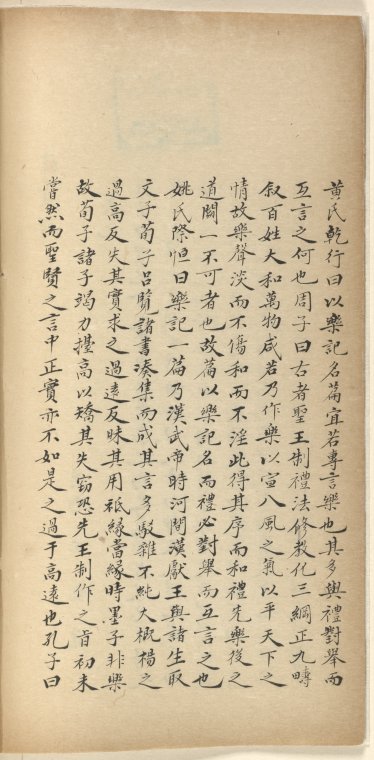 黄氏乾行曰以樂記名篇宜若專言樂也其多與禮對舉而
互言之何也周子曰古者聖王制禮法修教化三綱正九疇
叙百姓大和萬物咸若乃作樂以宣八風之氣以平天下之
情故樂聲淡而不傷和而不淫此得其序而和禮先樂後之
道闕一不可者也故篇以樂記名而禮必對舉而互言之也
姚氏際恒曰樂記一篇乃漢武帝時河間漢獻王與諸生取
文子荀子吕覽諸書湊集而成其言多駁雜不純大槪揚之
過高反失其實求之過遠反昧其用祗緣當緣時墨子非樂
故荀子諸子竭力擡高以矯其失窃恐先王制作之旨初未
嘗然而聖賢之言中正實亦不如是之過于高遠也孔子曰